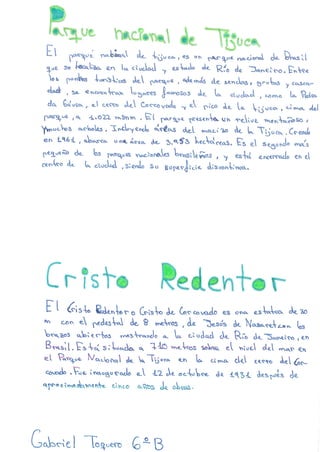 Parque nacional de Tijuca
El parque nacional de tijuca, es un parque nacional de Brasil
que se localiza en la ciudad y estado de Río de Janeiro. Entre
los puntos turísticos del parque, además de sendas, grutas y casca-
das, se encuentran lugares famosos de la ciudad, como la Pedra
da Gávea, el cerro del Corcovado y el pico de la tijuca, cima del
parque, a 1.022 msnm. El parque presenta un relive montañoso,
y muchos arboles. Incluyendo áreas del macizo de la Tijuca. Creado
en 1961, abarca una área de 3.953 hectáreas. Es el segundo más
pequeño de los parques nacionales brasileños, y está encerrado en el
centro de la ciudad, siendo su superficie discontinua.
Cristo Redentor
El Cristo Redentor o Cristo de Corcovado es una estatua de 30
m con el pedestal de 8 metros, de Jesús de Nazaret con los
brazos abiertos mostrando a la ciudad de Río de Janeiro, en
Brasil. Está situada a 710 metros sobre el nivel del mar en
el Parque Nacional de la Tijuca en la cima del cerro del Cor-
covado. Fue inaugurado el 12 de octubre de 1931 después de
aproximadamente cinco años de obras.
Gabriel Toquero 6º B